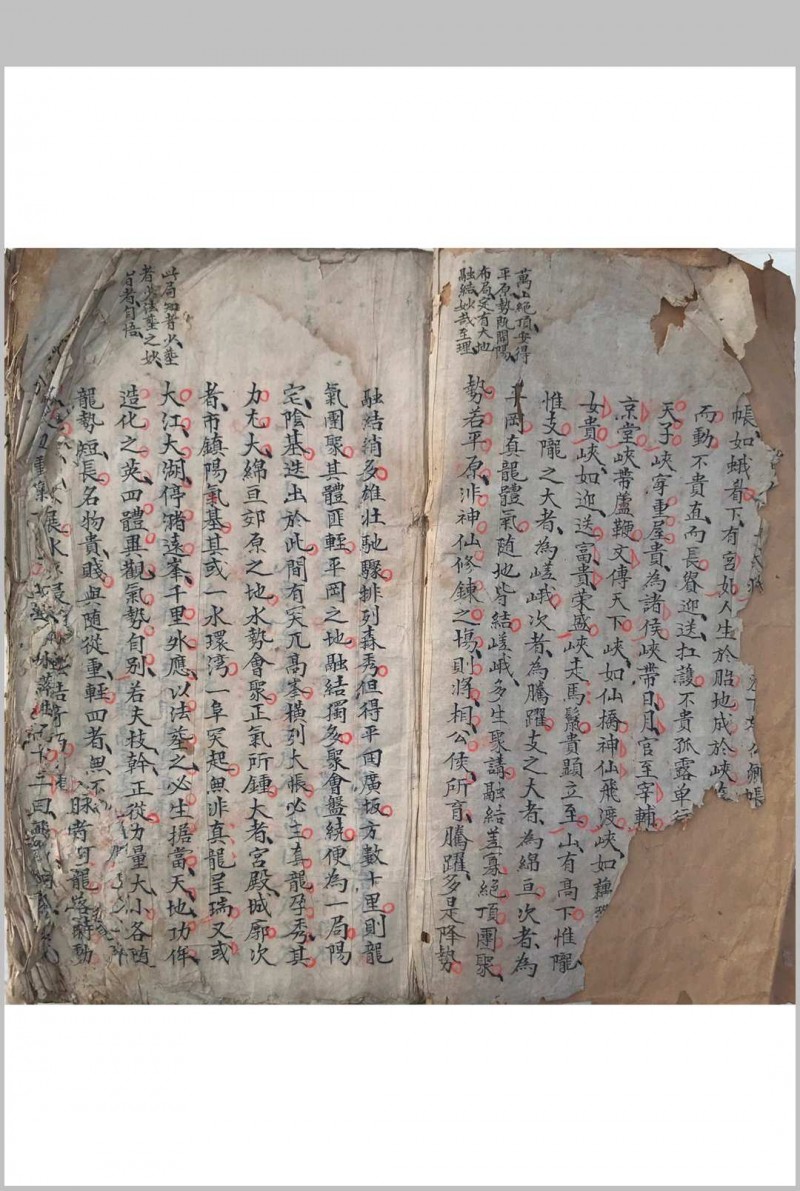 萬山絕頂安得
平原勢既開陽
布局定有大地
融結妙哉至理
帳如蛾眉下有宮妃人生於胎地成於峽
而動不貴直而長眷迎送扛護不貴孤露單行
天子峽穿重屋貴為諸侯峽帶日月官至宰輔
京堂峽帶蘆鞭文傳天下峽如仙橋神仙飛渡峽如藕
女貴峽如迎送富貴榮盛峽走馬鬃貴顯立至山有高下惟隴
惟支隴之大者為嵯峨次者為騰躍支之大者為綿亘次者為
平岡真龍體氣随地皆結嵯峨多生聚講融結蓋寡絕頂團聚
勢若平原非神仙修鍊之塲則將相公侯所育騰躍多是降勢
此局知者少塟
者安法塟之妙
旨者自悟
融結稍多雄壯馳驟排列森秀但得平田廣坂方數十里則龍
氣團聚其體匪輕平岡之地融結獨多聚會盤繞便為一局陽
宅陰基迭出於此間有突兀高峯橫列大帳必生真龍孕秀其
力尤大綿亘郊原之地水勢會聚正氣所鍾大者宮殿城廓次
者市鎮陽氣基其或一水環湾一阜突起無非真龍呈瑞又或
大江大湖停潴遠峯千里外應以法塟之必生掀當天地功侔
造化之英四體異觀氣勢自別若夫枝幹正從力量大小各随
龍勢短長名物貴賤與随從重輕四者無不
脉者旬龍